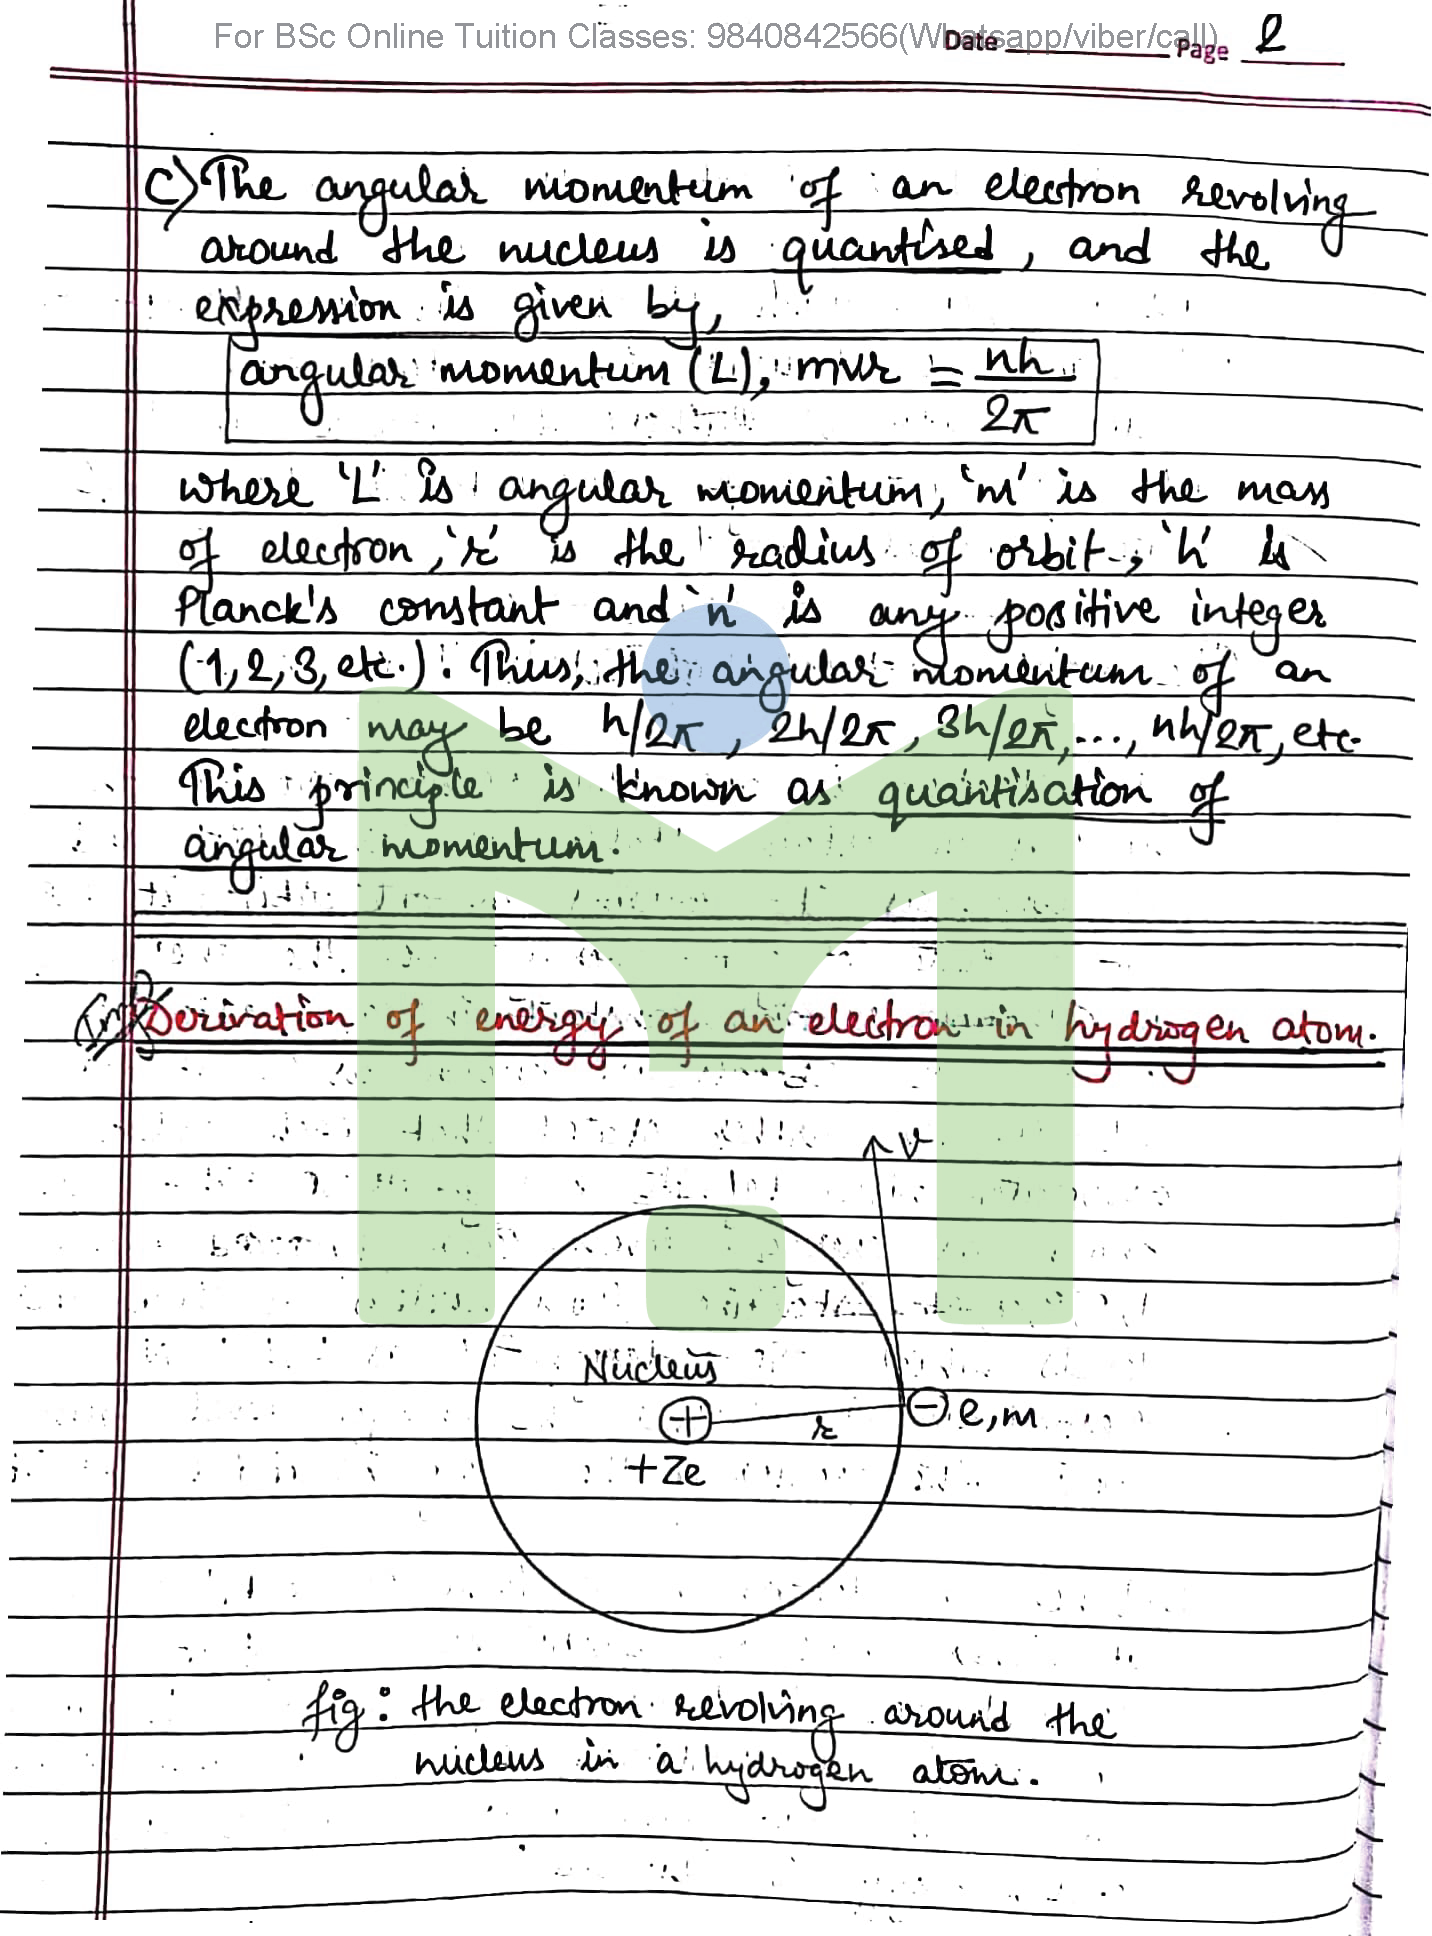 For BSc Online Tuition Classes: 9840842566(Whatsapp/viber/call)
Date Page 2
C) The angular momentum of an electron revolving
around the nucleus is quantised, and the
expression is given by,
angular momentum (L), mvr = nh/2π
where 'L' is angular momentum, 'm' is the mass
of electron, 'r' is the radius of orbit, 'h' is
Planck's constant and 'n' is any positive integer
(1,2,3, etc.). Thus, the angular momentum of an
electron may be h/2π, 2h/2π, 3h/2π,..., nh/2π, etc.
This principle is known as quantisation of
angular momentum.
(Imp) Derivation of energy of an electron in hydrogen atom.
v
Nucleus
+ r − e, m
+Ze
fig: the electron revolving around the
nucleus in a hydrogen atom.